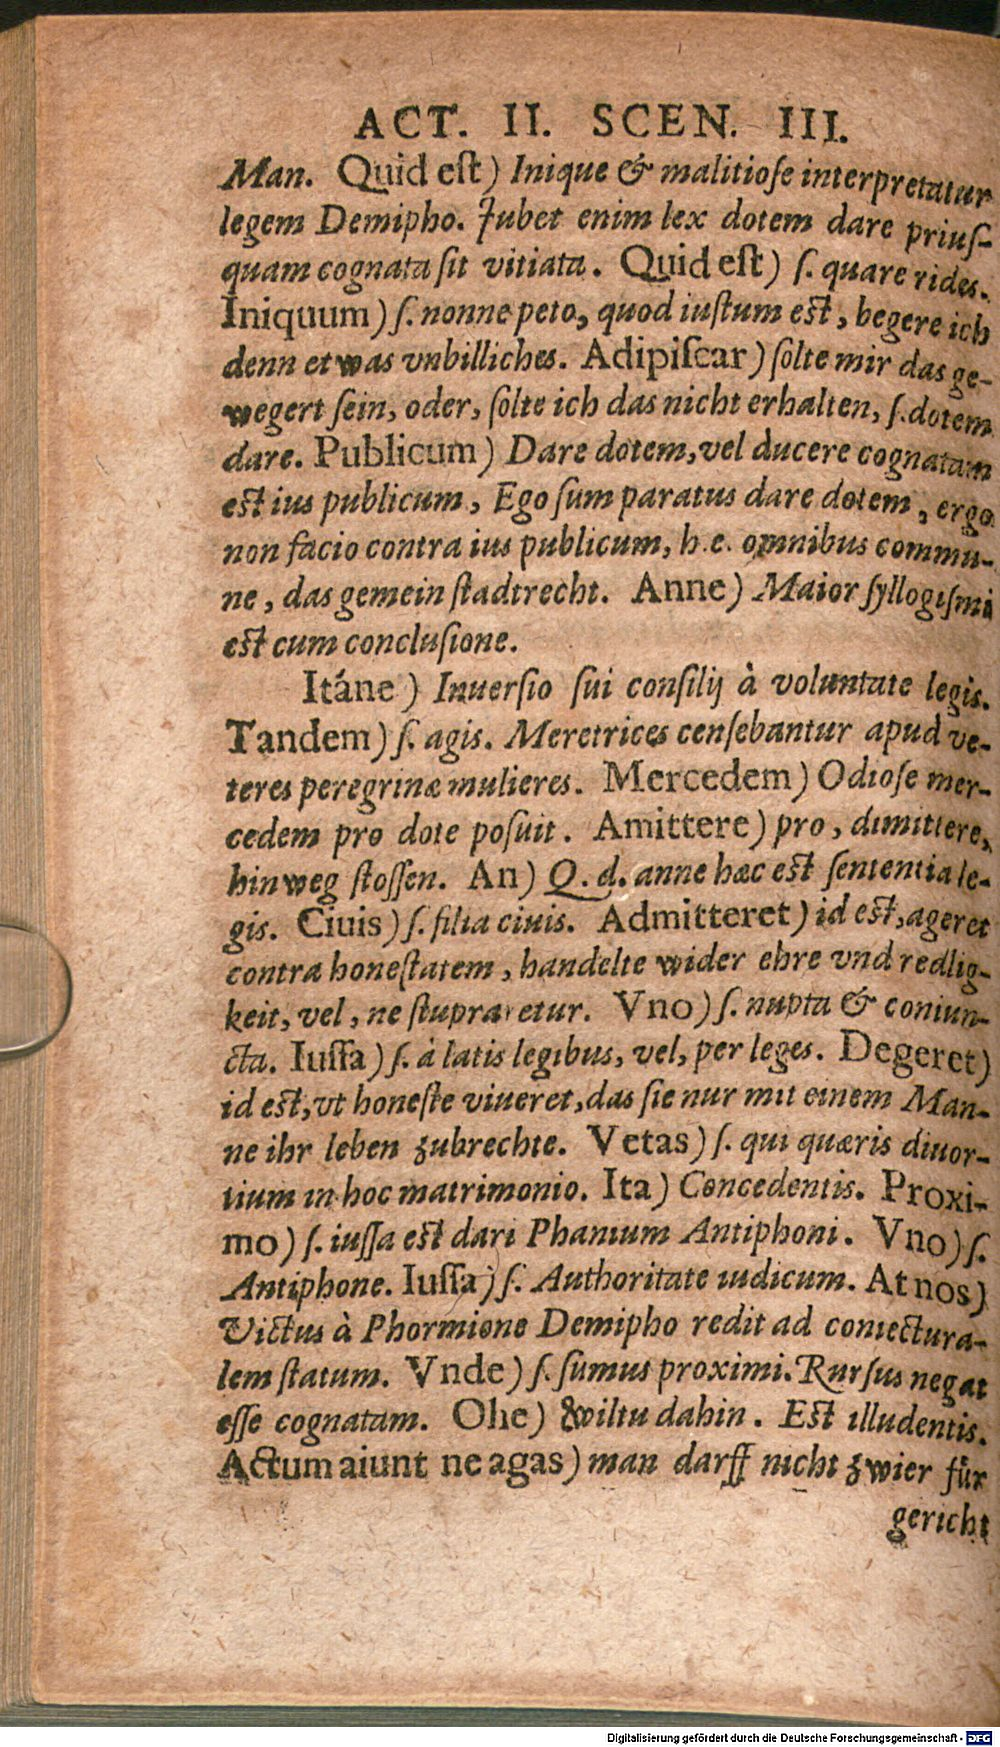 ACT. II. SCEN. III.
Man. Quid eſt) Inique & malitioſe interpretatur
legem Demipho. Jubet enim lex dotem dare priuſ-
quam cognata ſit vitiata. Quid eſt) ſ. quare rides.
Iniquum) ſ. nonne peto, quod iuſtum eſt, begere ich
denn etwas vnbilliches. Adipiſcar) ſolte mir das ge-
wegert ſein, oder, ſolte ich das nicht erhalten, ſ. dotem
dare. Publicum) Dare dotem, vel ducere cognatam
eſt ius publicum, Ego ſum paratus dare dotem, ergo
non facio contra ius publicum, h.e. omnibus commu-
ne, das gemein ſtadtrecht. Anne) Maior ſyllogiſmi
eſt cum concluſione.
Itáne) Inuerſio ſui conſilij à voluntate legis.
Tandem) ſ. agis. Meretrices cenſebantur apud ve-
teres peregrinæ mulieres. Mercedem) Odioſe mer-
cedem pro dote poſuit. Amittere) pro, dimittere,
hinweg ſtoſſen. An) Q. d. anne hæc eſt ſententia le-
gis. Ciuis) ſ. filia ciuis. Admitteret) id eſt, ageret
contra honeſtatem, handelte wider ehre vnd redlig-
keit, vel, ne ſtupraretur. Vno) ſ. nupta & coniun-
cta. Iuſſa) ſ. à latis legibus, vel, per leges. Degeret)
id eſt, vt honeſte viueret, das ſie nur mit einem Man-
ne ihr leben zubrechte. Vetas) ſ. qui quæris diuor-
tium in hoc matrimonio. Ita) Concedentis. Proxi-
mo) ſ. iuſſa eſt dari Phanium Antiphoni. Vno) ſ.
Antiphone. Iuſſa) ſ. Authoritate iudicum. At nos)
Victus à Phormione Demipho redit ad coniectura-
lem ſtatum. Vnde) ſ. ſumus proximi. Rurſus negat
eſſe cognatam. Ohe) wiltu dahin. Eſt illudentis.
Actum aiunt ne agas) man darff nicht zwier für
gericht
Digitalisierung gefördert durch die Deutsche Forschungsgemeinschaft - DFG